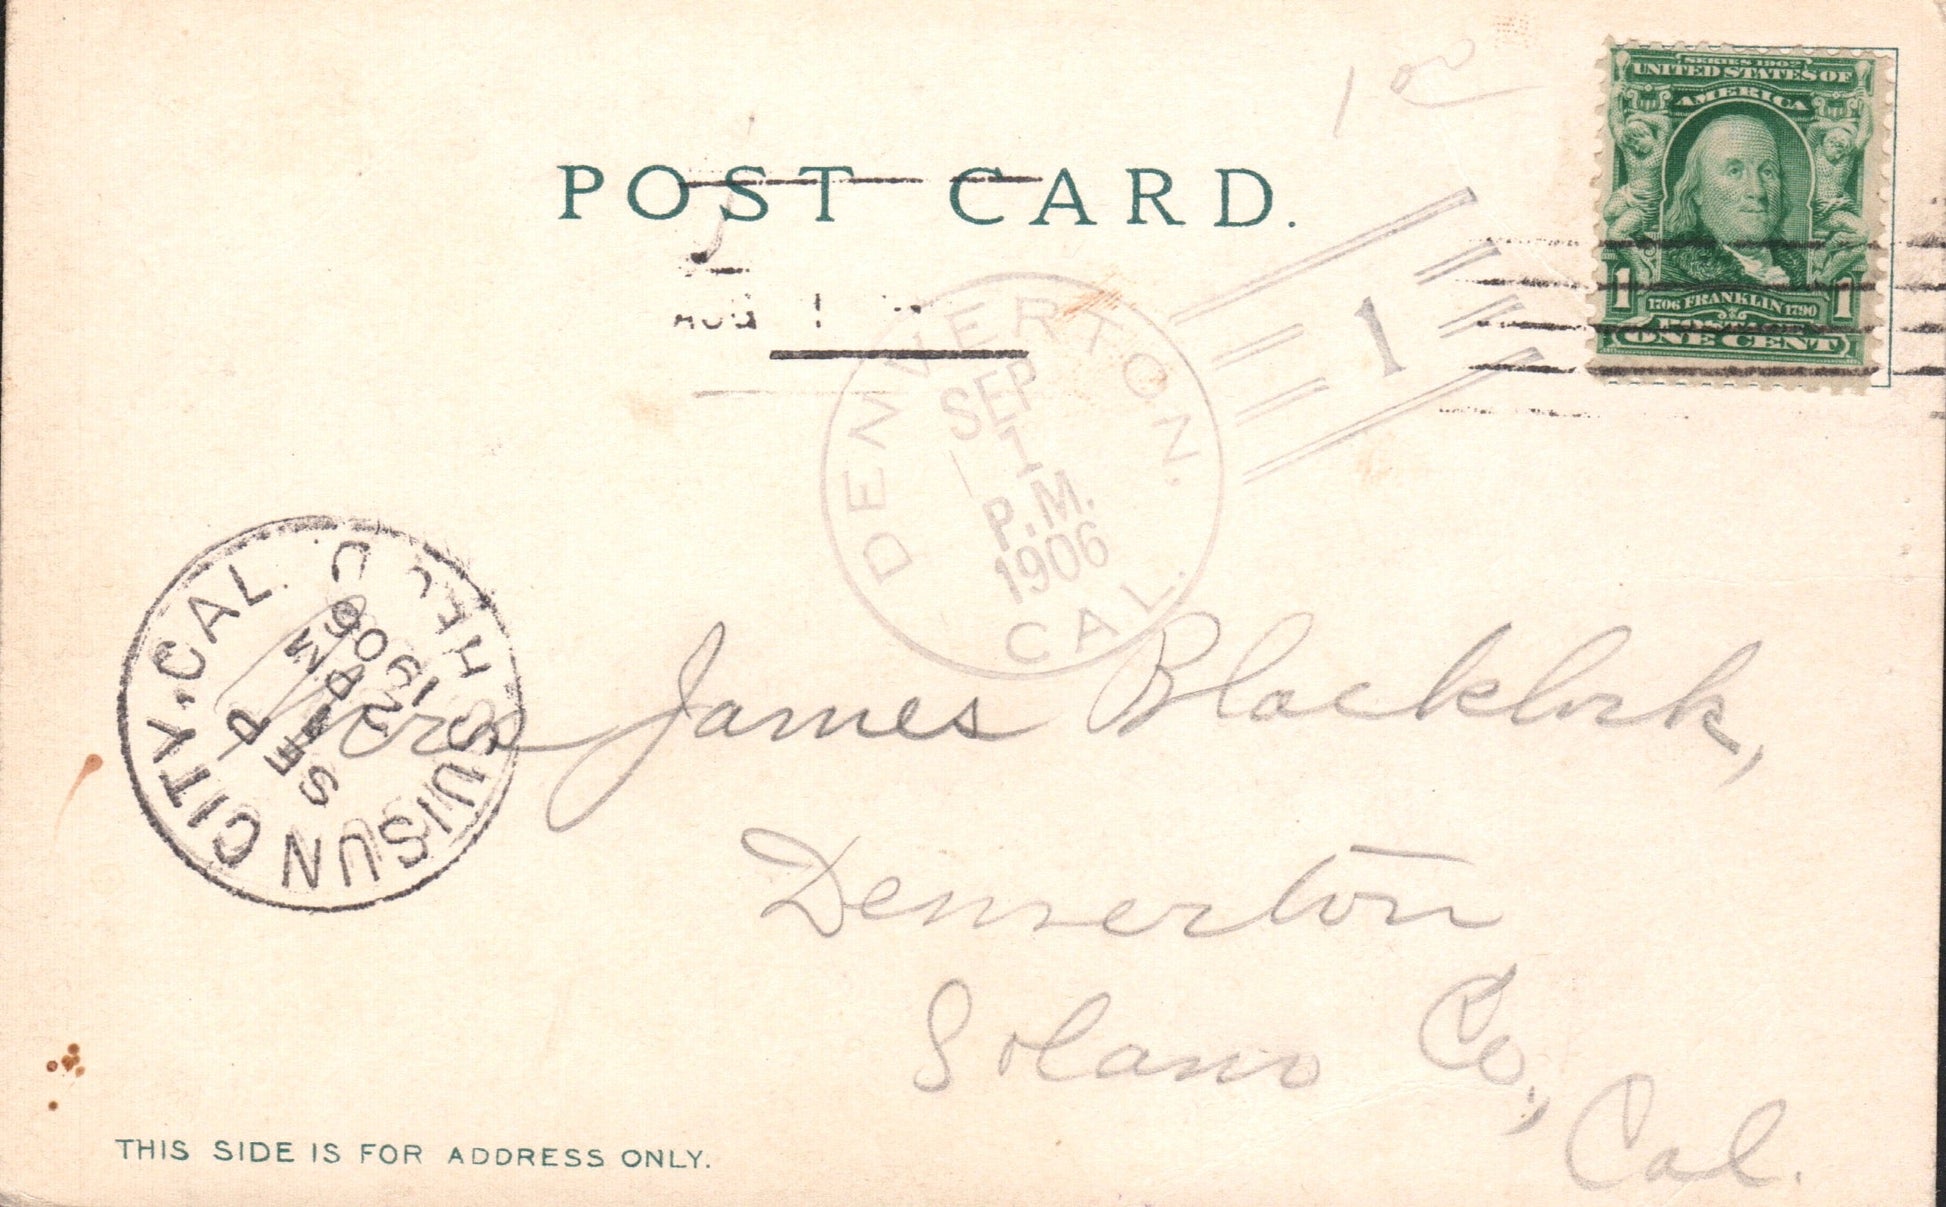 1 00
SERIES 1902
UNITED STATES OF
AMERICA
1706 FRANKLIN 1790
1 1
POSTAGE
ONE CENT
POST CARD.
AUG 1
DENVERTON,
SEP
1
P.M.
1906
CAL.
1
SUISUN CITY, CAL.
SEP
2
AM
1906
REC'D
Mrs James Blacklock,
Denverton
Solano Co.,
Cal.
THIS SIDE IS FOR ADDRESS ONLY.